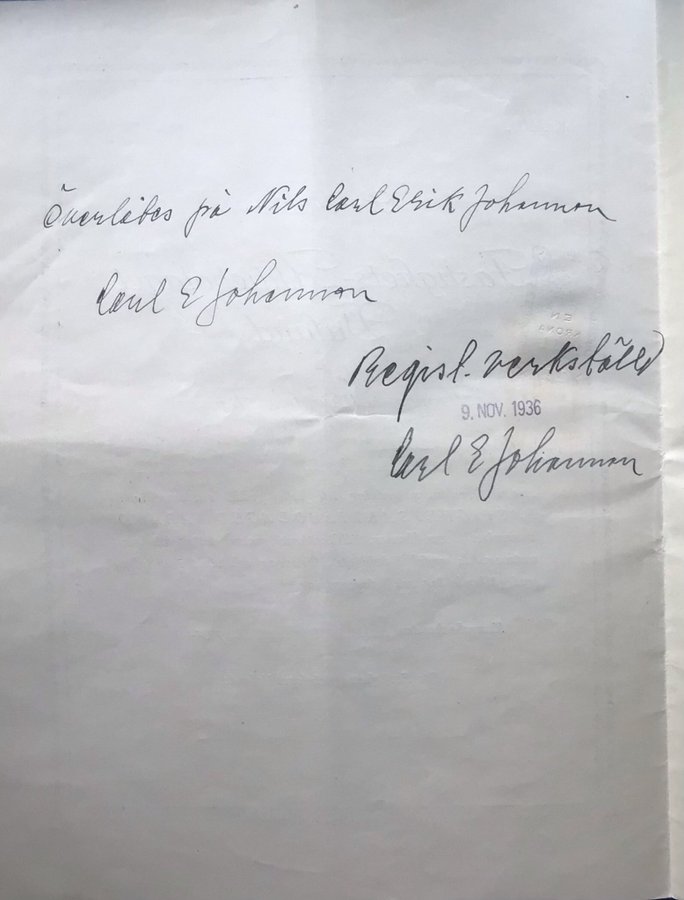 Överlåtes på Nils Carl Erik Johansson
Carl E Johansson
Regist. verkställd
9. NOV. 1936
Carl E Johansson